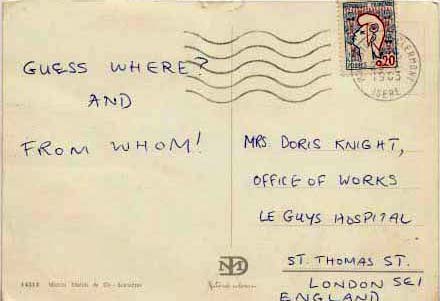 GUESS WHERE?
AND
FROM WHOM!
0,20
1963
ISERE
MRS DORIS KNIGHT,
OFFICE OF WORKS
LE GUYS HOSPITAL
ST. THOMAS ST.
LONDON SE1
ENGLAND